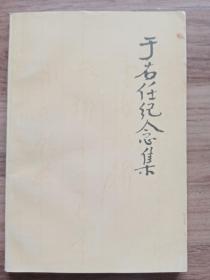 于右任纪念集